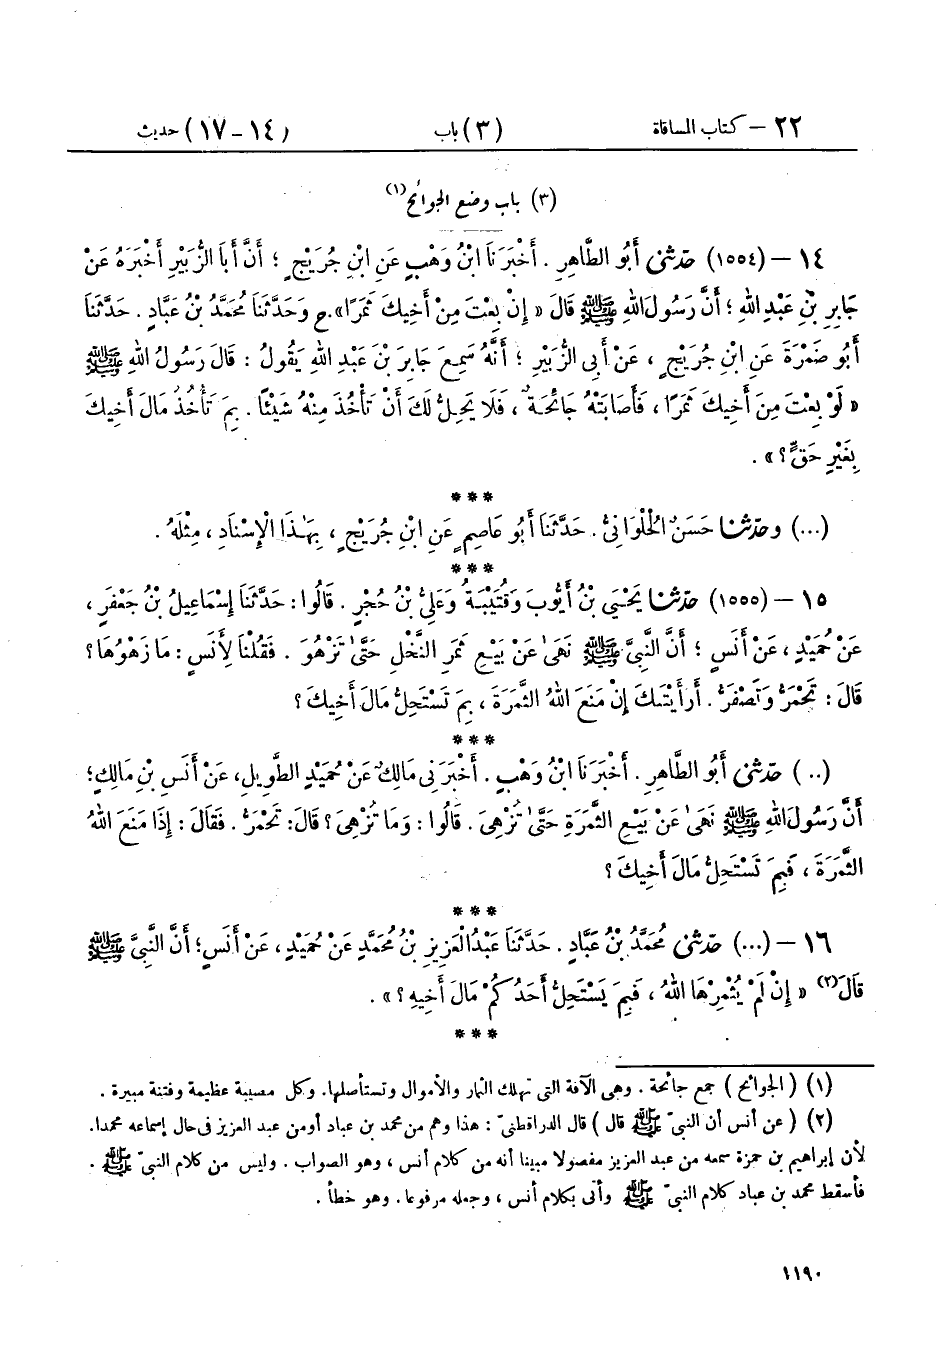 ٢٢ – كتاب المساقاة (٣) باب (١٤-١٧) حديث
(٣) باب وضع الجوائح(١)
١٤ – (١٥٥٤) حَدَّثَنِى أَبُو الطَّاهِرِ . أَخْبَرَنَا ابْنُ وَهْبٍ عَنِ ابْنِ جُرَيْجٍ ؛ أَنَّ أَبَا الزُّبَيْرِ أَخْبَرَهُ عَنْ
جَابِرِ بْنِ عَبْدِ اللهِ ؛ أَنَّ رَسُولَ اللهِ ﷺ قَالَ « إِنْ بِعْتَ مِنْ أَخِيكَ ثَمَرًا ». ح وَحَدَّثَنَا مُحَمَّدُ بْنُ عَبَّادٍ . حَدَّثَنَا
أَبُو ضَمْرَةَ عَنِ ابْنِ جُرَيْجٍ ، عَنْ أَبِى الزُّبَيْرِ ؛ أَنَّهُ سَمِعَ جَابِرَ بْنَ عَبْدِ اللهِ يَقُولُ : قَالَ رَسُولُ اللهِ ﷺ
« لَوْ بِعْتَ مِنَ أَخِيكَ ثَمَرًا ، فَأَصَابَتْهُ جَائِحَةٌ ، فَلَا يَحِلُّ لَكَ أَنْ تَأْخُذَ مِنْهُ شَيْئًا . بِمَ تَأْخُذُ مَالَ أَخِيكَ
بِغَيْرِ حَقٍّ ؟ » .
***
(...) وحَدَّثَنَا حَسَنٌ الْحُلْوَانِىُّ . حَدَّثَنَا أَبُو عَاصِمٍ عَنِ ابْنِ جُرَيْجٍ ، بِهَٰذَا الْإِسْنَادِ ، مِثْلَهُ .
***
١٥ – (١٥٥٥) حَدَّثَنَا يَحْيَى بْنُ أَيُّوبَ وَقُتَيْبَةُ وَعَلِىُّ بْنُ حُجْرٍ . قَالُوا : حَدَّثَنَا إِسْمَاعِيلُ بْنُ جَعْفَرٍ ،
عَنْ حُمَيْدٍ ، عَنْ أَنَسٍ ؛ أَنَّ النَّبِىَّ ﷺ نَهَىٰ عَنْ بَيْعِ ثَمَرِ النَّخْلِ حَتَّىٰ تَزْهُوَ . فَقُلْنَا لِأَنَسٍ : مَا زَهْوُهَا ؟
قَالَ : تَحْمَرُّ وَتَصْفَرُّ . أَرَأَيْتَكَ إِنْ مَنَعَ اللهُ الثَّمَرَةَ ، بِمَ تَسْتَحِلُّ مَالَ أَخِيكَ ؟
***
(..) حَدَّثَنِى أَبُو الطَّاهِرِ . أَخْبَرَنَا ابْنُ وَهْبٍ . أَخْبَرَنِى مَالِكٌ عَنْ حُمَيْدٍ الطَّوِيلِ، عَنْ أَنَسِ بْنِ مَالِكٍ؛
أَنَّ رَسُولَ اللهِ ﷺ نَهَىٰ عَنْ بَيْعِ الثَّمَرَةِ حَتَّىٰ تُزْهِىَ . قَالُوا : وَمَا تُزْهِىَ ؟ قَالَ: تَحْمَرُّ . فَقَالَ : إِذَا مَنَعَ اللهُ
الثَّمَرَةَ ، فَبِمَ تَسْتَحِلُّ مَالَ أَخِيكَ ؟
***
١٦ – (...) حَدَّثَنِى مُحَمَّدُ بْنُ عَبَّادٍ . حَدَّثَنَا عَبْدُ الْعَزِيزِ بْنُ مُحَمَّدٍ عَنْ حُمَيْدٍ ، عَنْ أَنَسٍ؛ أَنَّ النَّبِىَّ ﷺ
قَالَ(٢) « إِنْ لَمْ يُثْمِرْهَا اللهُ ، فَبِمَ يَسْتَحِلُّ أَحَدُكُمْ مَالَ أَخِيهِ ؟ » .
***
(١) ( الجوائح ) جمع جائحة . وهى الآفة التى تهلك الثمار والأموال وتستأصلها. وكل مصيبة عظيمة وفتنة مبيرة .
(٢) ( عن أنس أن النبىّ ﷺ قال ) قال الدارقطنىّ : هذا وهم من محمد بن عباد أو من عبد العزيز فى حال إسماعه محمدا.
لأن إبراهيم بن حمزة سمعه من عبد العزيز مفصولا مبينا أنه من كلام أنس ، وهو الصواب . وليس من كلام النبىّ ﷺ .
فأسقط محمد بن عباد كلام النبىّ ﷺ وأتى بكلام أنس ، وجعله مرفوعا . وهو خطأ .
١١٩٠